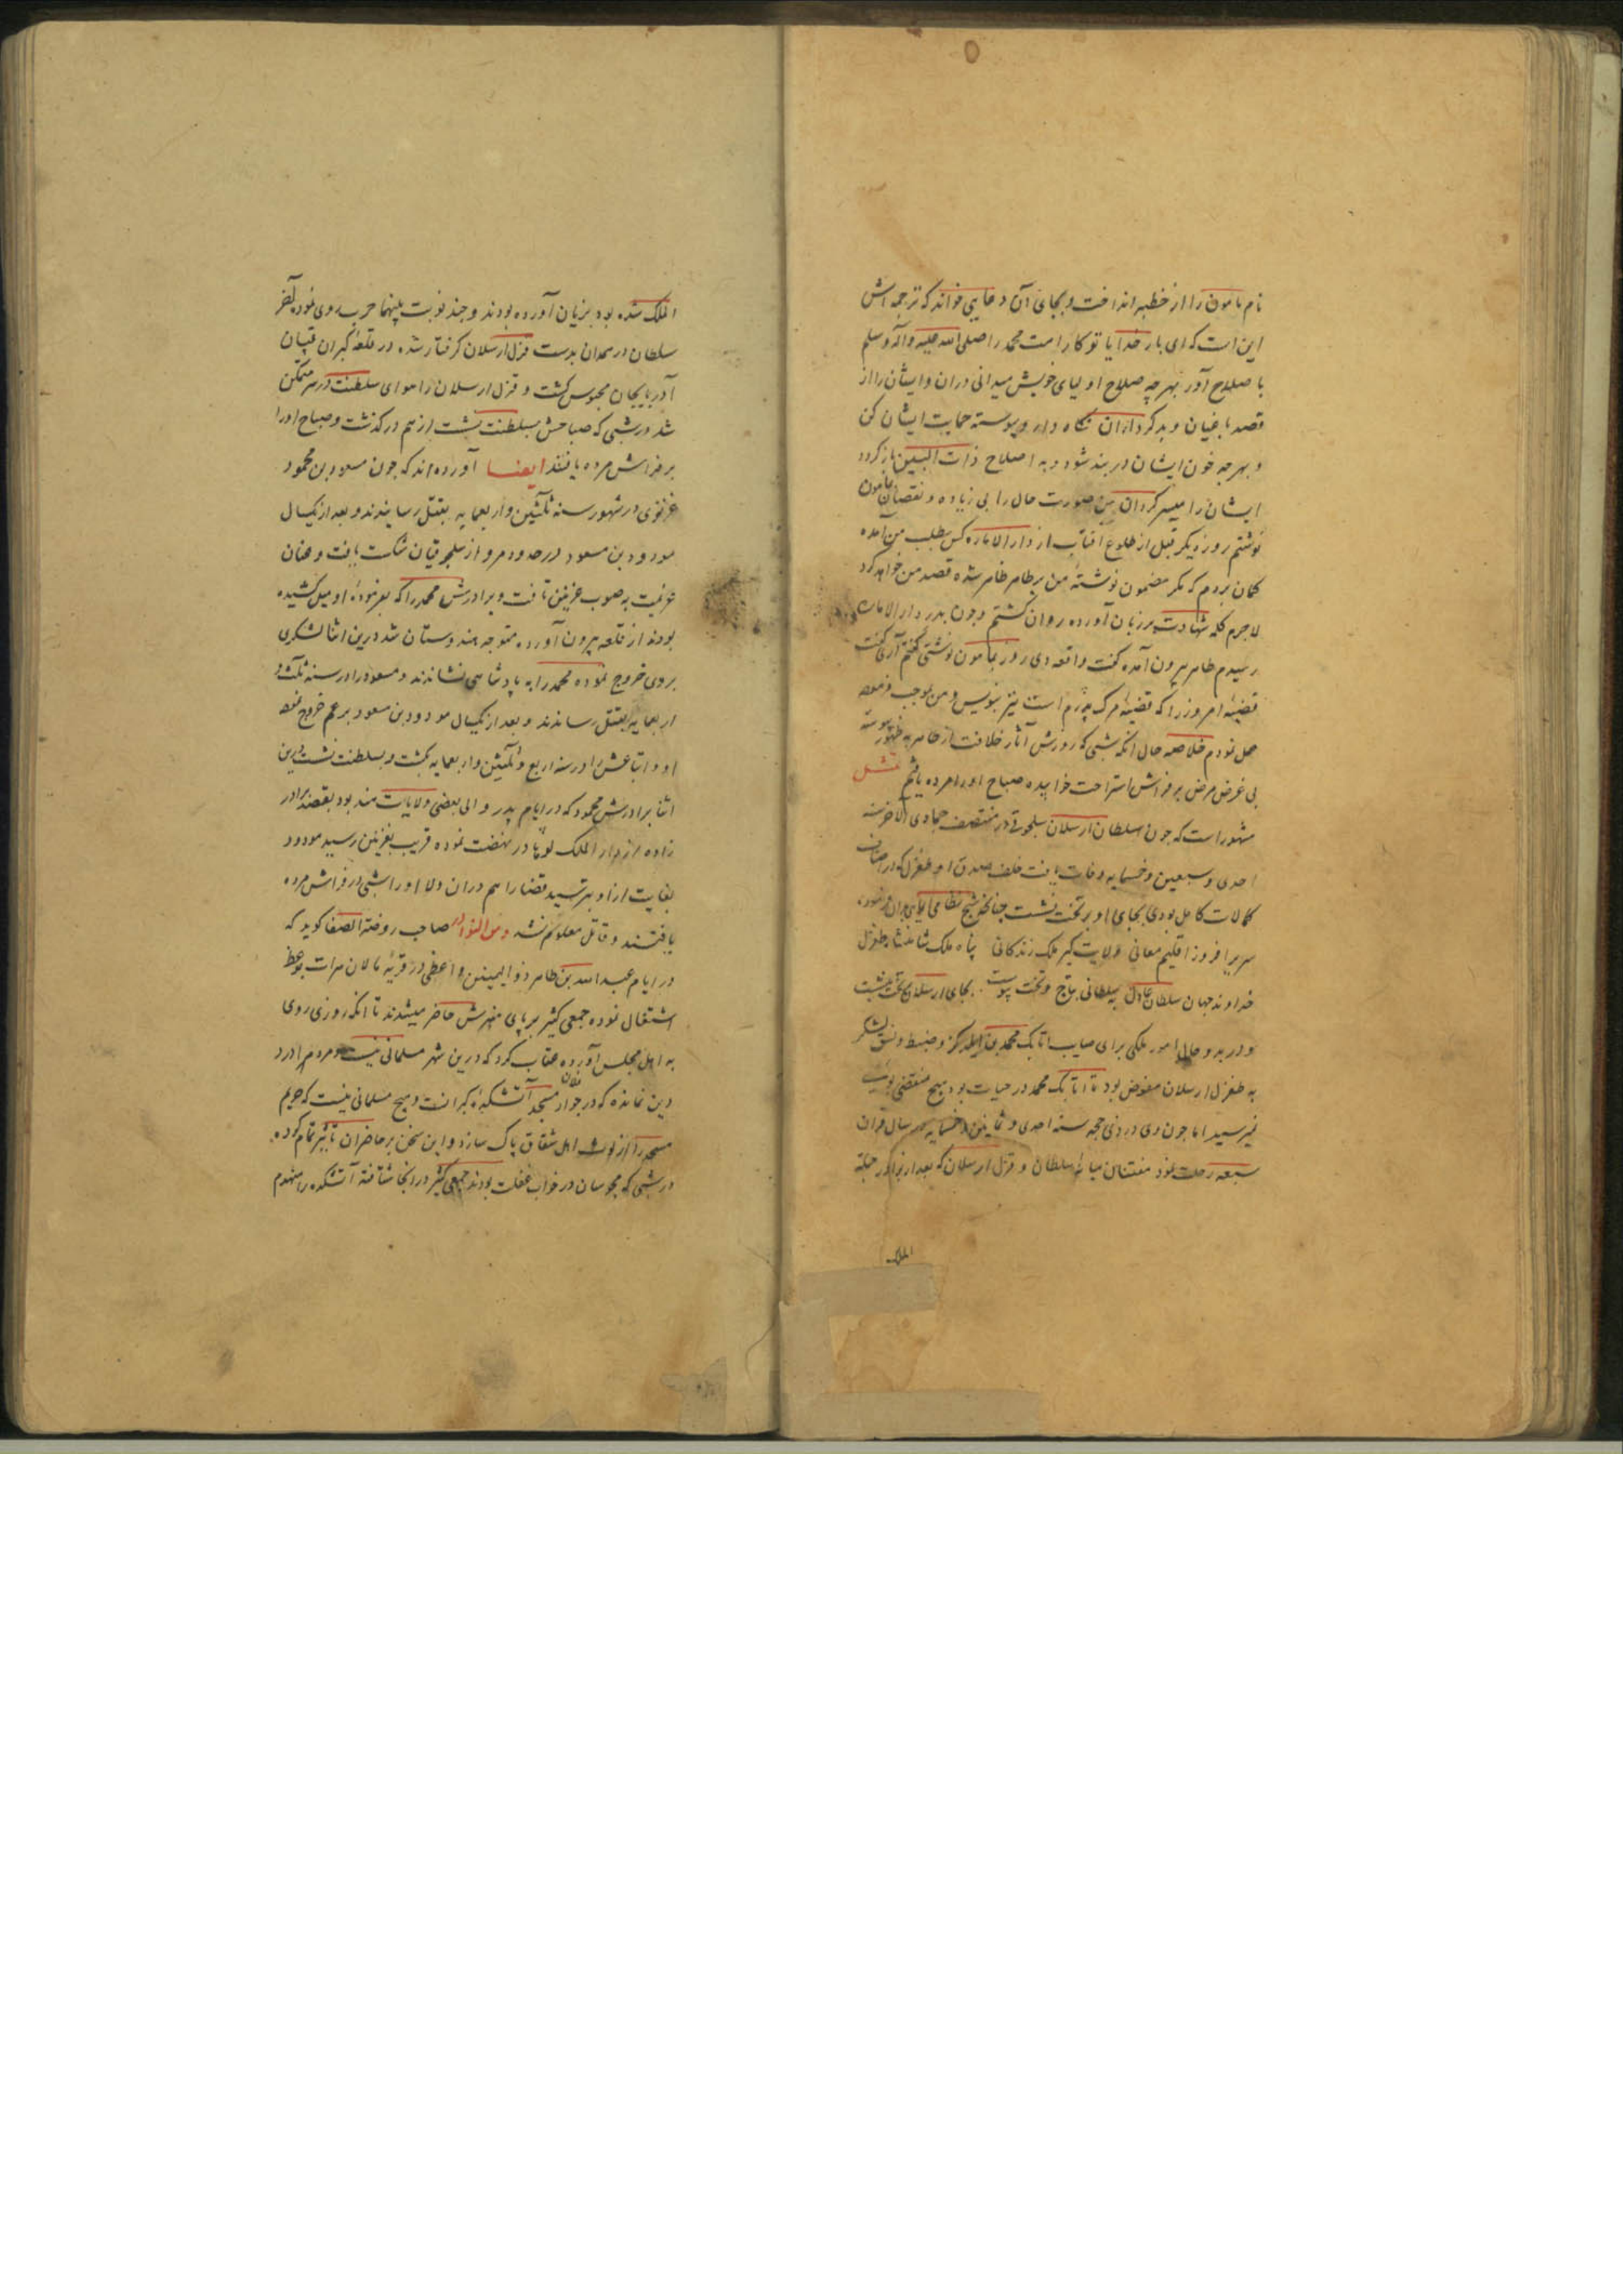 نام مامون را از خطبه انداخت و بجای آن دعایی خواند که ترجمه اش
این است که ای بار خدایا تو کار امت محمد را صلی الله علیه و آله و سلم
با صلاح آور بهر چه صلاح اولیای خویش میدانی دران و ایشان را از
قصد باغیان و بدکرداران نگاه دار و پیوسته حمایت ایشان کن
و بهر چه خون ایشان در بند شود و به اصلاح ذات البین باز کردد
ایشان را میسر کردان من صورت حال را بی زیاده و نقصان بمامون
نوشتم روز دیکر قبل از طلوع آفتاب از دار الاماره کس بطلب من آمده
کمان بردم که مکر مضمون نوشتهٔ من بر طاهر ظاهر شده قصد من خواهد کرد
لاجرم کلمه شهادت بر زبان آورده روان کشتم و چون بدر دار الاماره
رسیدم طاهر بیرون آمده کفت واقعه دی روز بمامون نوشتی کفتم آری کفت
قضیهٔ امروز را که قضیهٔ مرک پدرم است نیز بنویس و من بموجب فرموده
عمل نمودم خلاصه حال انکه شبی که روزش آثار خلافت از طاهر به ظهور پیوسته
بی غرض مرض بر فراش استراحت خوابیده صباح او را مرده یافتم نقل
مشهور است که چون سلطان ارسلان سلجوقی در منتصف جمادی الاخر سنه
احدی و سبعین و خمسمایه وفات یافت خلف صدق او طغرل که در اصناف
کمالات کامل بودی بجای او بر تخت نشست چنانچه شیخ نظامی ایمایی بدان فرموده
سریر افروز اقلیم معانی ولایت کیر ملک زندکانی پناه ملک شاهنشاه طغرل
خداوند جهان سلطان عادل بسلطانی بتاج و تخت پیوست بجای ارسلان بر تخت بنشست
و در بدو حال امور ملکی برای صایب اتابک محمد بن ایلدکز و ضبط و نسق لشکر
به قزل ارسلان مفوض بود تا اتابک محمد در حیات بود هیچ منقصتی بوی
نمیرسید اما چون وی در ذی حجه سنه احدی و ثمانین و خمسمایه سال قران
سبعه رحلت نمود مفتنان میانهٔ سلطان و قزل ارسلان که بعد از برادر حمله
الملک
الملک شده بود بزیان آورده بودند و چند نوبت بینهما حرب روی نمود آخر
سلطان در همدان بدست قزل ارسلان کرفتار شده در قلعهٔ کبران قپان
آذربایجان محبوس کشت و قزل ارسلان را هوای سلطنت در سر متمکن
شد در شبی که صباحش بسلطنت نشیند از هم درکذشت و صباح او را
بر فراش مرده یافتند ایضا آورده اند که چون مسعود بن محمود
غزنوی در شهور سنه ثلثین و اربعمایه بقتل رسانیدند و بعد از یکسال
مودود بن مسعود در حدود مرو از سلجوقیان شکست یافت و عنان
عزیمت به صوب غزنین تافت و برادرش محمد را که بفرمودهٔ او میل کشیده
بودند از قلعه بیرون آورده متوجه هندوستان شد درین اثنا لشکری
بر وی خروج نموده محمد را به پادشاهی نشاندند و مسعود را در سنه ثلث و
اربعمایه بقتل رساندند و بعد از یکسال مودود بن مسعود بر عم خروج نموده
او و اتباعش را در سنه اربع و ثلثین و اربعمایه بکشت و بسلطنت نشست درین
اثنا برادرش محمود که در ایام پدر والی بعضی ولایات هند بود بقصد برادر
زاده از دار الملک لوپادر نهضت نموده قریب بغزنین رسید مودود
بغایت از او بترسید قضا را هم دران ولا او را شبی در فراش مرده
یافتند و قاتل معلوم نشد ومن النوادر صاحب روضة الصفا کوید که
در ایام عبد الله بن طاهر ذو الیمینین واعظی در قریه مالان هرات بوعظ
اشتغال نموده جمعی کثیر بر پای منبرش حاضر میشدند تا انکه روزی روی
به اهل مجلس آورده عتاب کرد که درین شهر مسلمانی نیست و مردم را درد
دین نمانده که در جوار فلان مسجد آتشکدهٔ کبرانست و هیچ مسلمانی نیست که حریم
مسجد را از لوث اهل شقاق پاک سازد و این سخن بر حاضران تاثیر تمام کرده
در شبی که مجوسان در خواب غفلت بودند جمعی کثیر در انجا شتافته آتشکده را منهدم